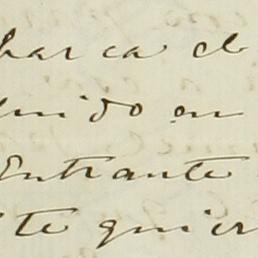 barca el
uido en
Entrante
te quier